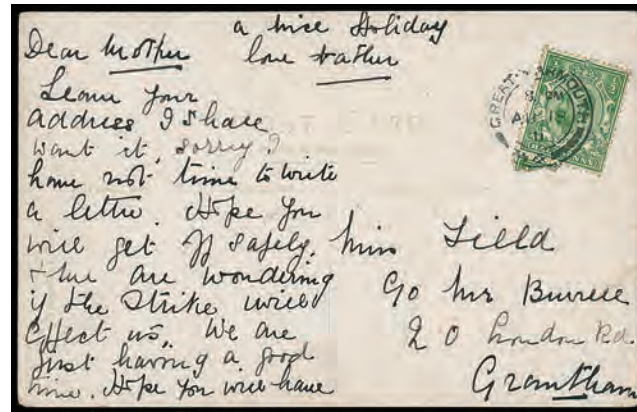 a nice Holiday
love Father
Dear Mother
Leave your
address I shall
want it, sorry I
have not time to write
a letter. Hope you
will get off safely.
+ we are wondering
if the Strike will
effect us. We are
just having a good
time. Hope you will have
GREAT YARMOUTH
8 PM
AU 18
11
Miss Field
C/o Mrs
20 London Rd.
Grantham